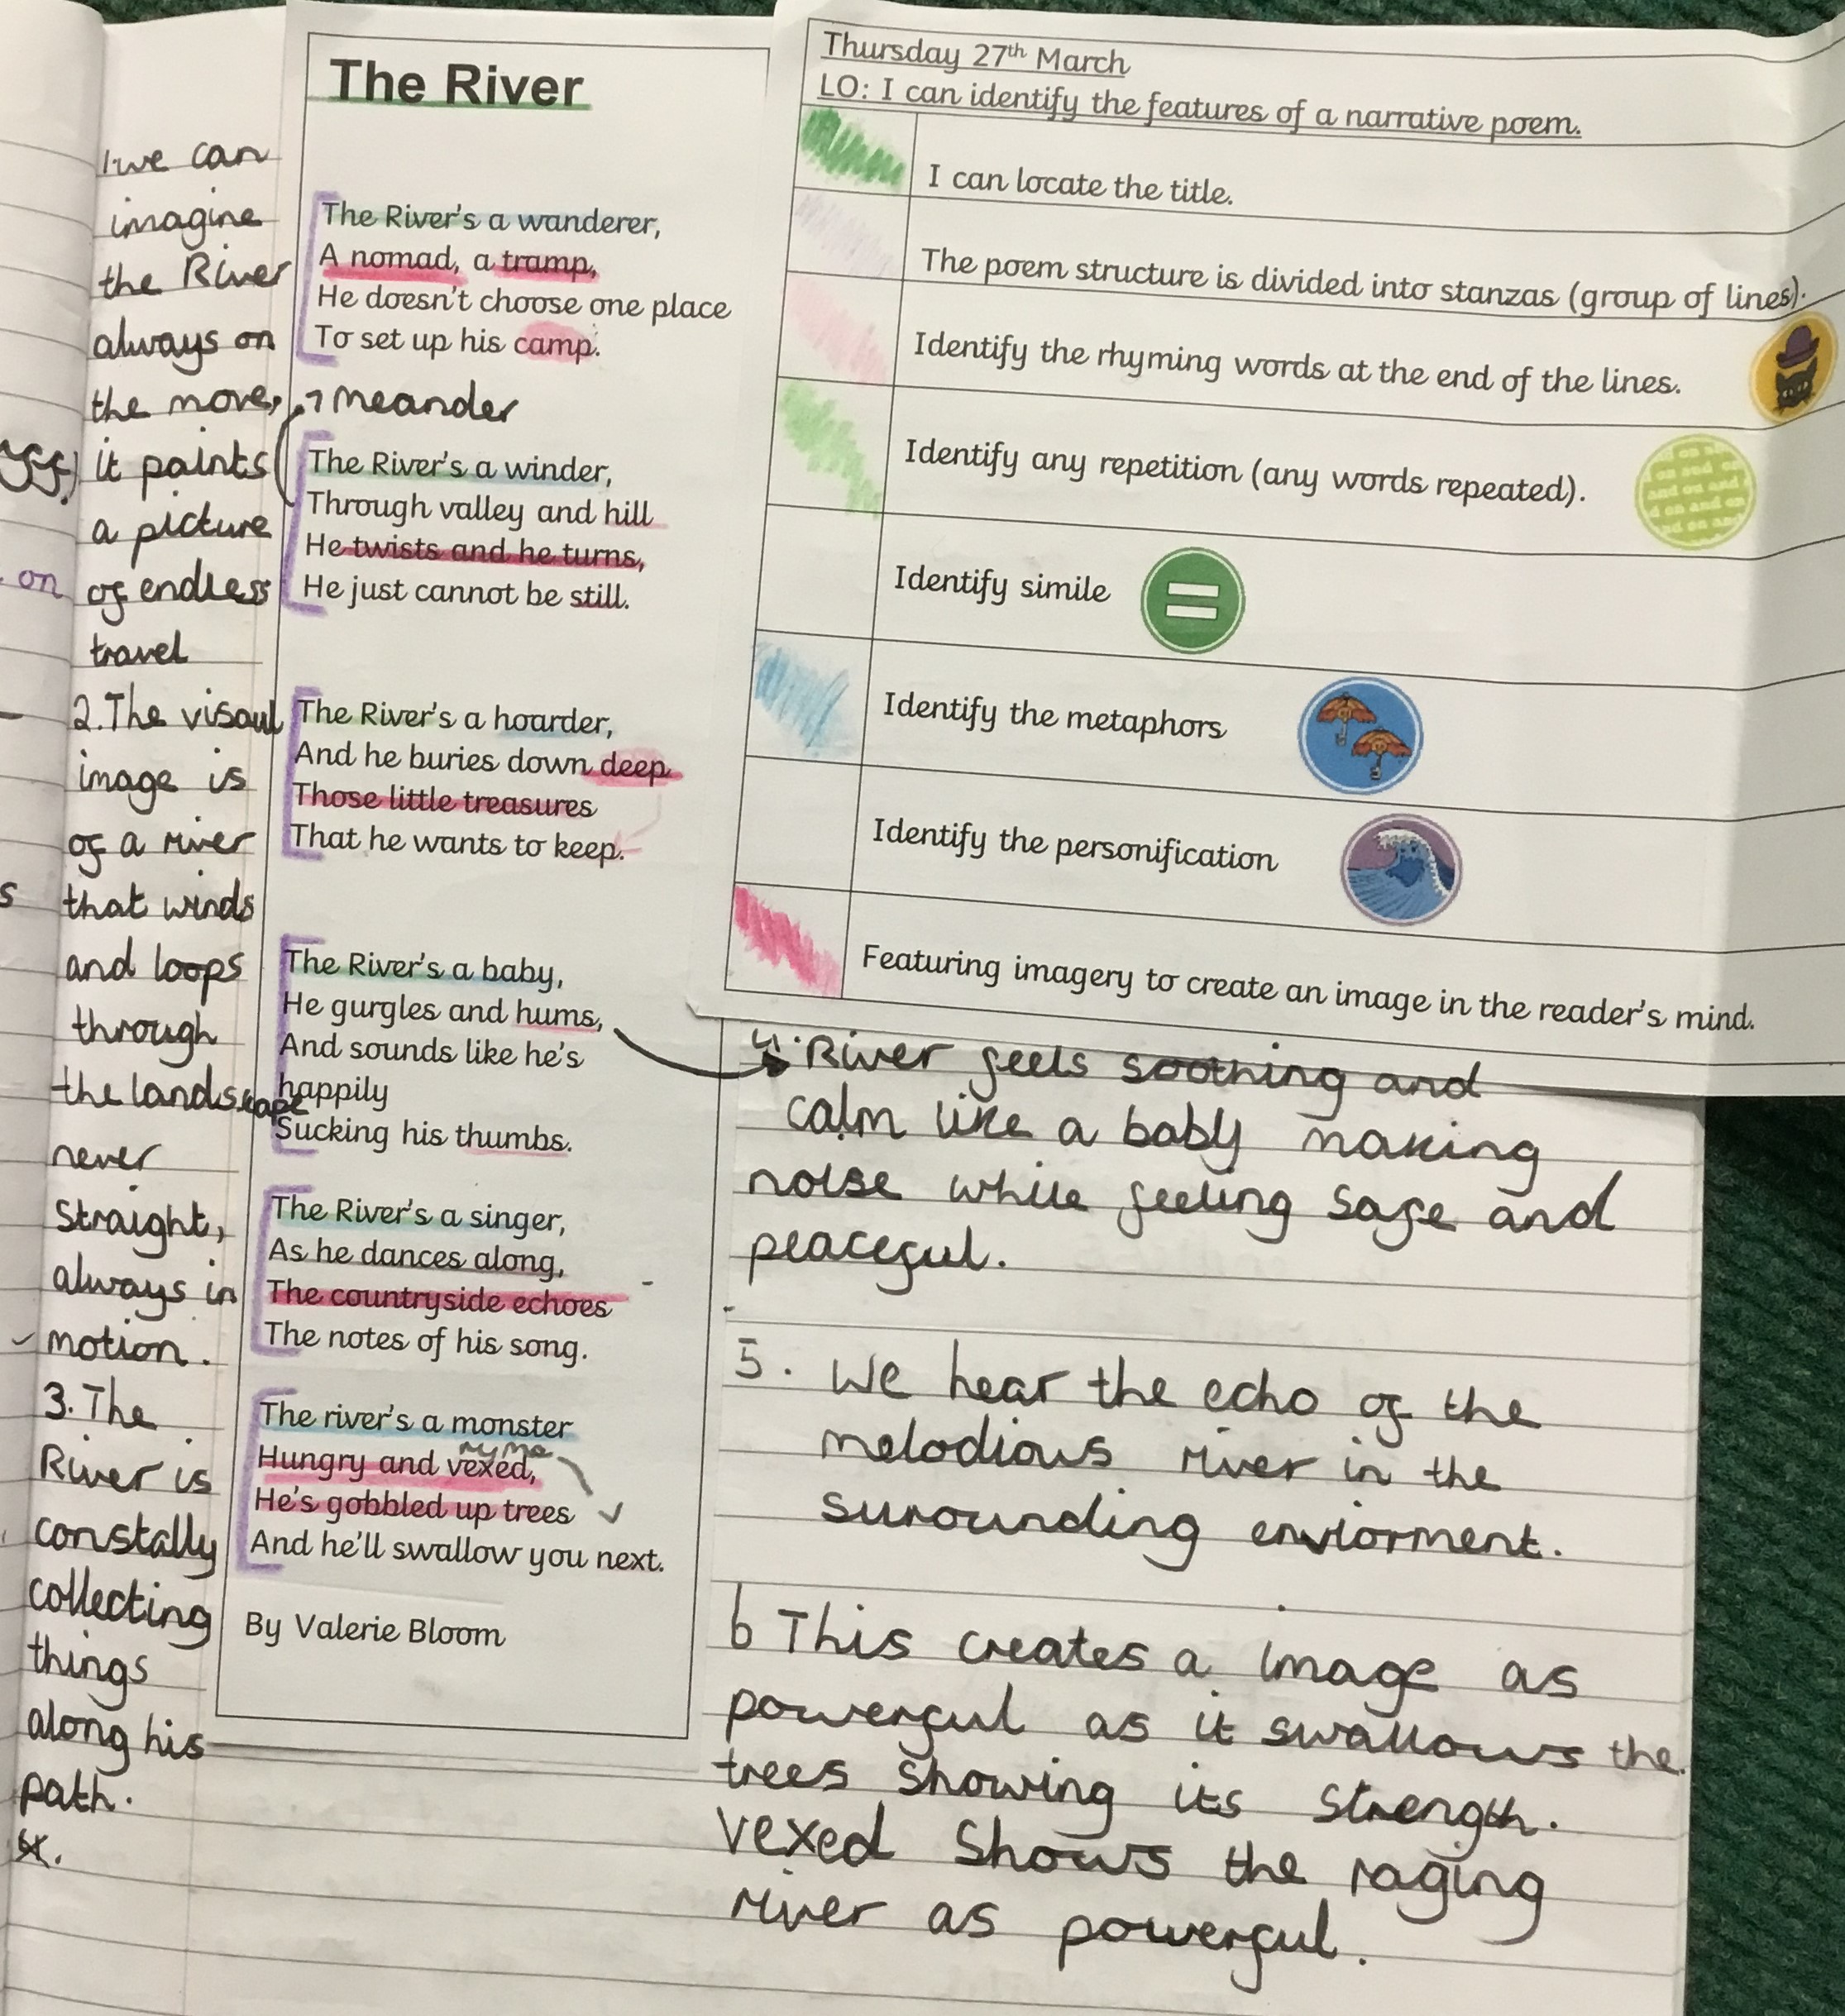 The River
The River's a wanderer,
A nomad, a tramp,
He doesn't choose one place
To set up his camp.
meander
The River's a winder,
Through valley and hill
He twists and he turns,
He just cannot be still.
The River's a hoarder,
And he buries down deep
Those little treasures
That he wants to keep.
The River's a baby,
He gurgles and hums,
And sounds like he's
happily
Sucking his thumbs.
The River's a singer,
As he dances along,
The countryside echoes
The notes of his song.
The river's a monster
ryme
Hungry and vexed,
He's gobbled up trees
And he'll swallow you next.
By Valerie Bloom
Thursday 27th March
LO: I can identify the features of a narrative poem.
I can locate the title.
The poem structure is divided into stanzas (group of lines).
Identify the rhyming words at the end of the lines.
Identify any repetition (any words repeated).
Identify simile
Identify the metaphors
Identify the personification
Featuring imagery to create an image in the reader's mind.
1.we can
imagine
the River
always on
the move,
it paints
a picture
of endless
travel
2.The visaul
image is
of a river
that winds
and loops
through
the landscape
never
straight,
always in
motion.
3. The
River is
constally
collecting
things
along his
path.
4. River feels soothing and
calm like a baby making
noise while feeling safe and
peaceful.
5. We hear the echo of the
melodious river in the
surounding enviorment.
6 This creates a image as
powerful as it swallows the
trees showing its strength.
vexed shows the raging
river as powerful.
on
s